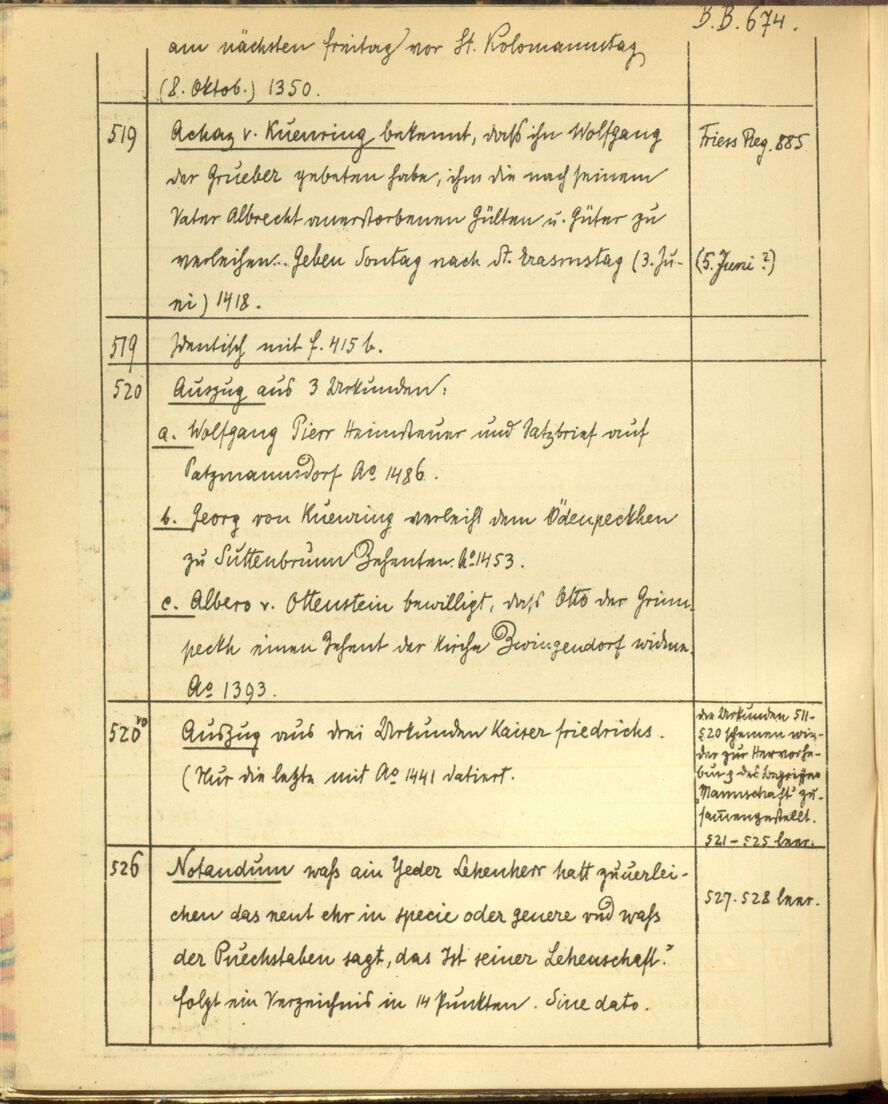 B.B. 674.
am nächsten Freitag vor St. Kolomannstag
(8. Oktob.) 1350.
519 Achaz v. Kuenring bekennt, daß ihn Wolfgang
Friess Reg. 885
der Grueber gebeten habe, ihm die nach seinem
Vater Albrecht anerstorbenen Gülten u. Güter zu
verleihen. Geben Sontag nach St. Erasmstag (3. Ju-
(5. Juni?)
ni) 1418.
519 Identisch mit f. 415 b.
520 Auszug aus 3 Urkunden:
a. Wolfgang Pierr Heimsteuer und Satzbrief auf
Patzmannsdorf Ao 1486.
b. Georg von Kuenring verleiht dem Ödenpeckhen
zu Suttenbrunn Zehenten. Ao 1453.
c. Albero v. Ottenstein bewilligt, daß Otto der Grim-
peckh einen Zehent der Kirche Zwingendorf widme.
Ao 1393.
520 vo Auszug aus drei Urkunden Kaiser Friedrichs.
(Nur die letzte mit Ao 1441 datiert.
die Urkunden 511-
520 scheinen wie-
der zur Hervorhe-
bung des Begriffes
"Mannschaft" zu-
sam̄engestellt.
521 – 525 leer.
526 Notandum waß ain Yeder Lehenherr hatt zuuerlei-
chen das nent ehr in specie oder genere vnd waß
527-528 leer.
der Puechstaben sagt, das Ist seiner Lehenschafft."
folgt ein Verzeichnis in 14 Punkten. Sine dato.